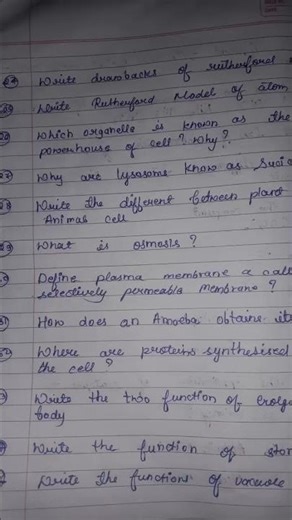 24 Write drawbacks of rutherford
25 Write Rutherford Model of atom
26 Which organelle is known as the
powerhouse of cell? Why?
27 Why are lysosome know as Suci
28 Write the different between plant
Animal cell
29 What is osmosis?
Define plasma membrane a call
selectively permeable membrane?
31 How does an Amoeba obtains its
32 Where are proteins synthesised
the cell?
3 Write the two function of
body
Write the function of
Write the functions of vacuole